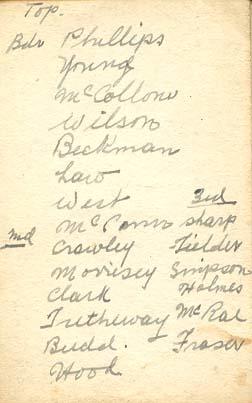 Top.
Bdr Phillips
Young
McCollono
Wilson
Beckman
Law
West 3rd
McCann Sharp
Crawley Fielder
Morrisey Simpson
Clark Holmes
Tretheway McRae
Budd. Fraser
Wood